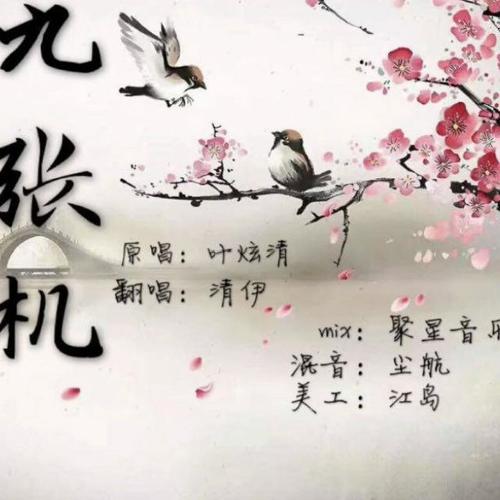 九张机
原唱：叶炫清
翻唱：清伊
mix：聚星音
混音：尘航
美工：江岛